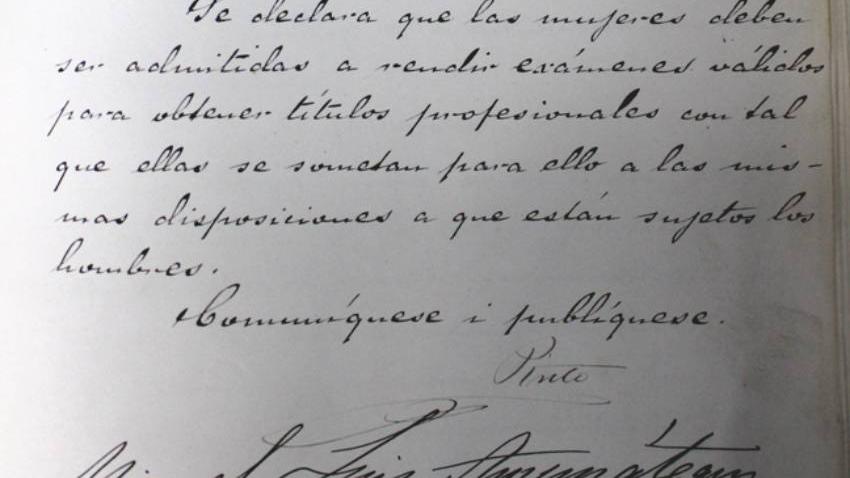 Se declara que las mujeres deben
ser admitidas a rendir exámenes válidos
para obtener títulos profesionales con tal
que ellas se sometan para ello a las mis-
mas disposiciones a que están sujetos los
hombres.
Comuníquese i publíquese.
Pinto
Miguel Luis Amunátegui